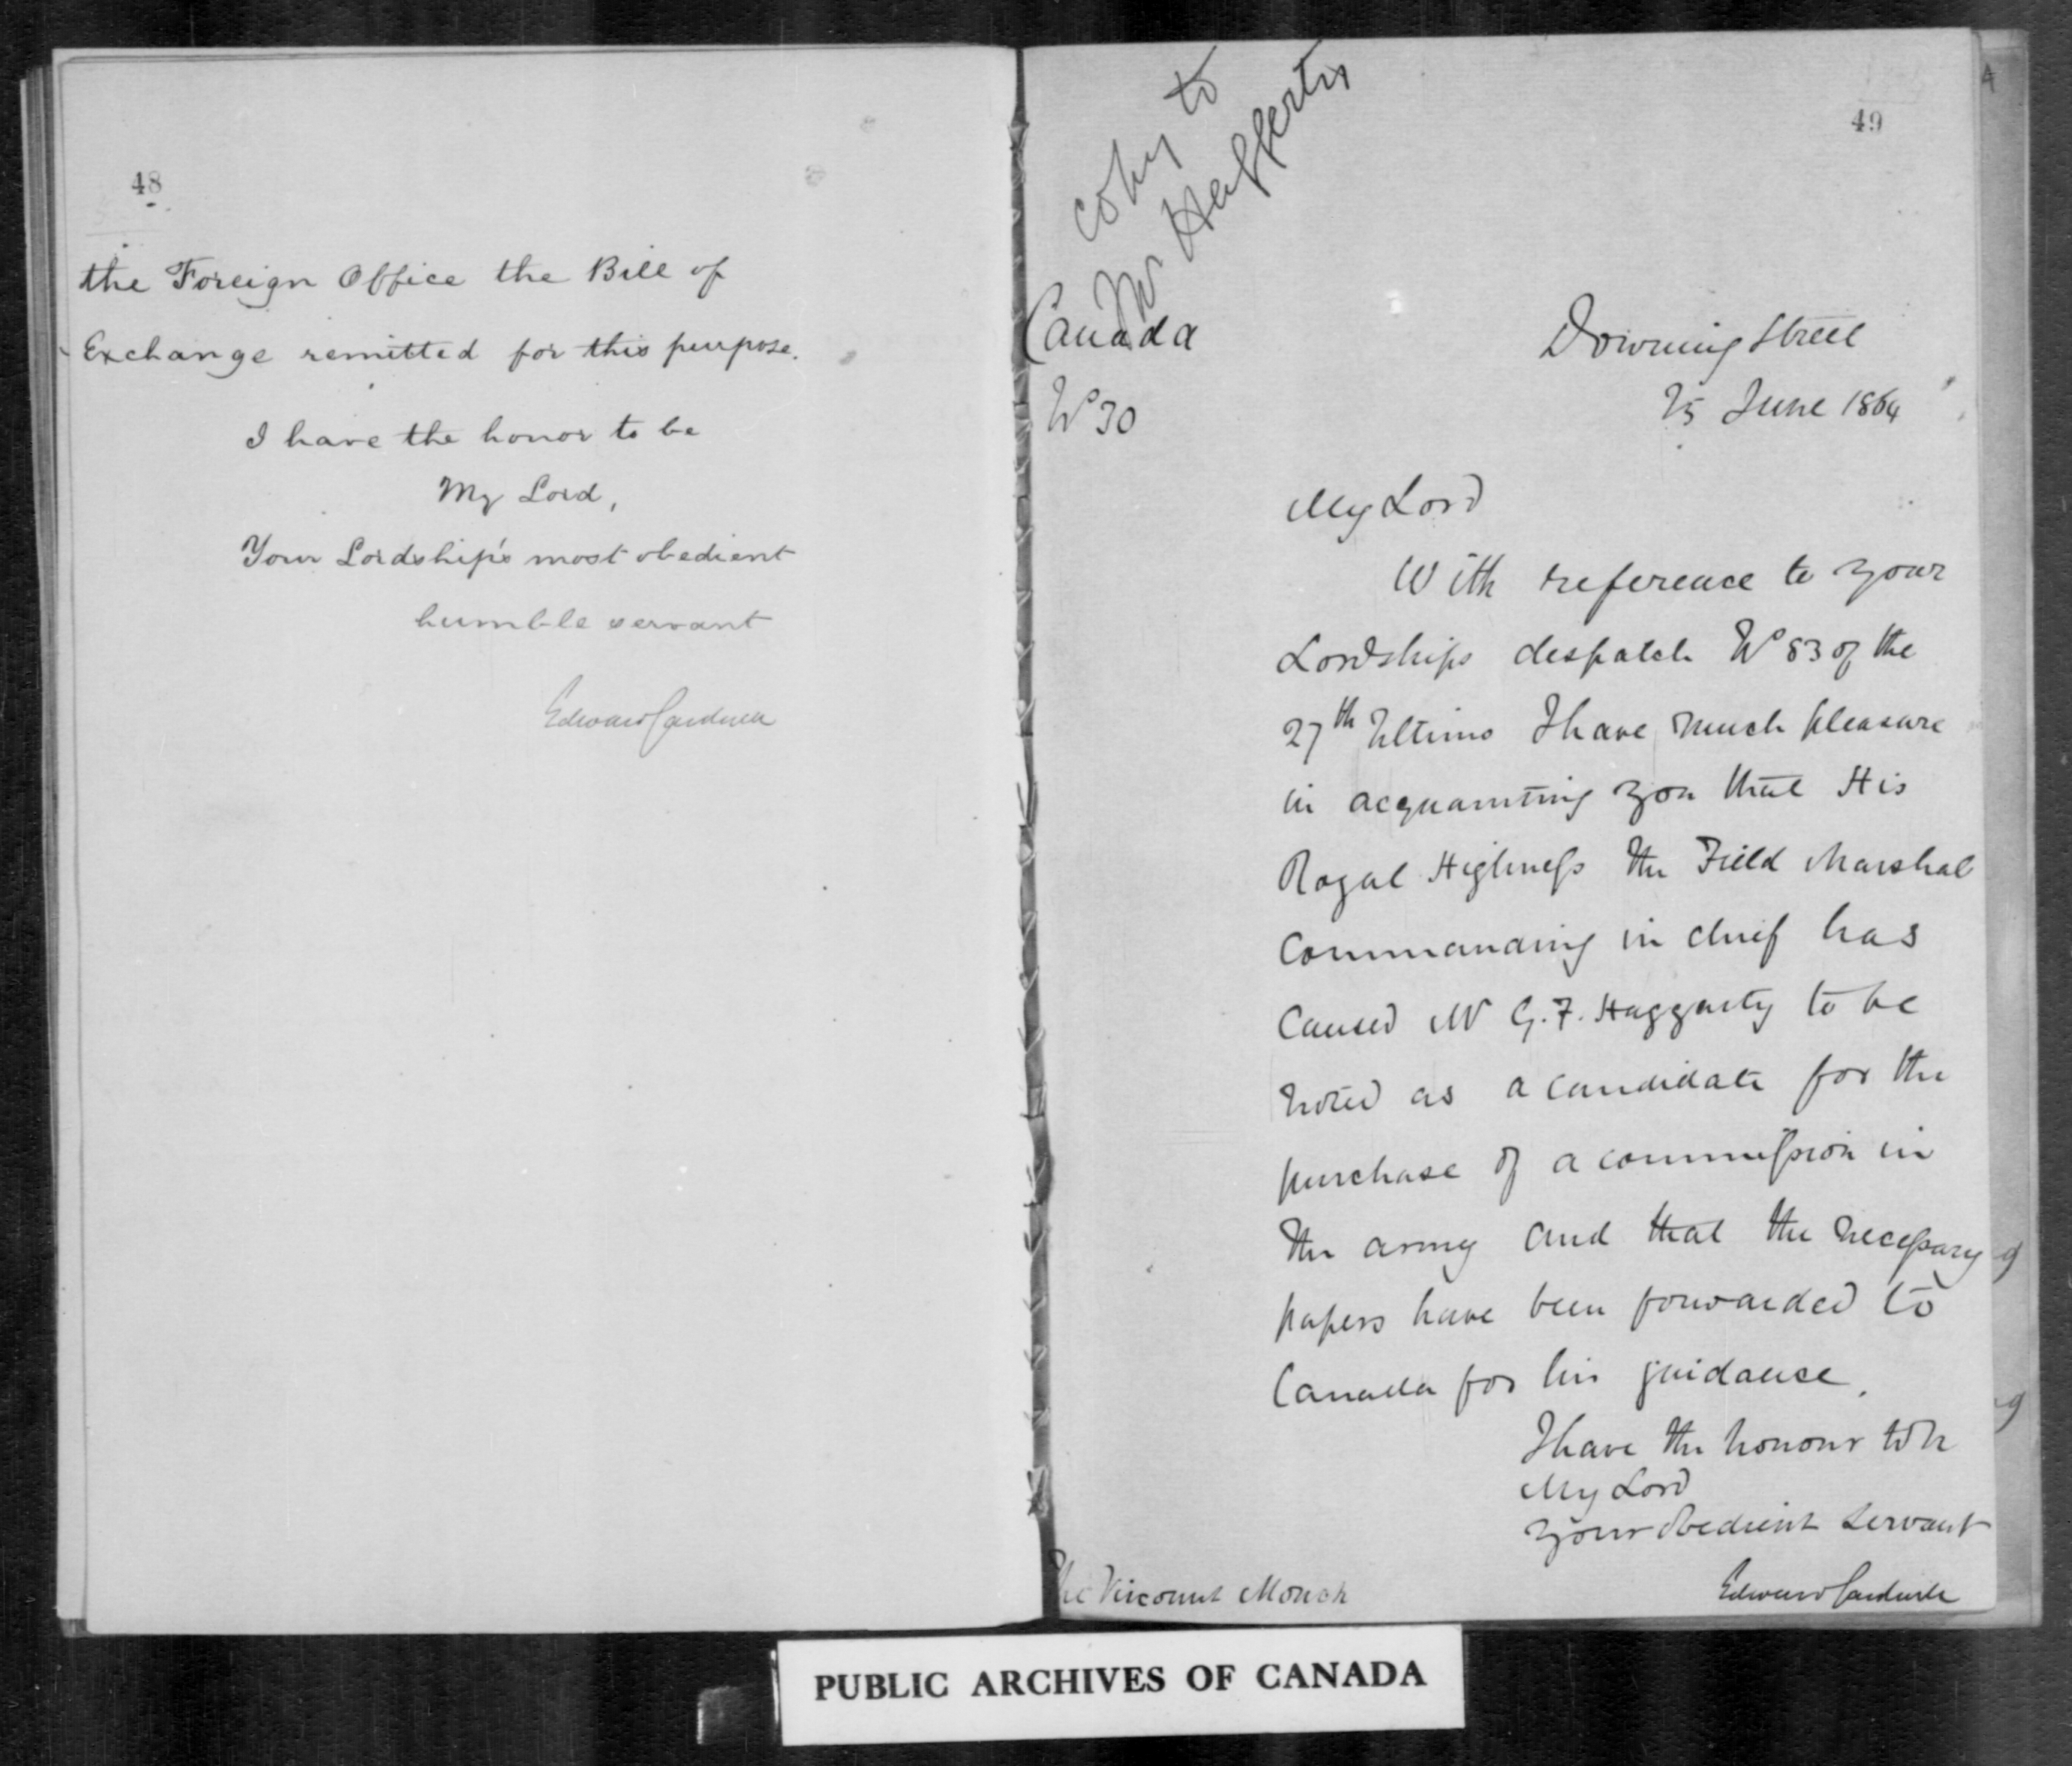 48
the Foreign Office the Bill of
Exchange remitted for this purpose.
I have the honor to be
My Lord,
Your Lordship's most obedient
humble servant
Edward Cardwell
49
copy to
Mr Hafferty
Canada
No 30
Downing Street
25 June 1864
My Lord
With reference to your
Lordships despatch No 83 of the
27th Ultimo I have much pleasure
in acquainting you that His
Royal Highness the Field Marshal
Commanding in chief has
Caused Mr G. F. Haggarty to be
noted as a candidate for the
purchase of a commission in
the army and that the necessary
papers have been forwarded to
Canada for his guidance.
I have the honour to be
My Lord
Your obedient servant
Edward Cardwell
The Viscount Monck
PUBLIC ARCHIVES OF CANADA